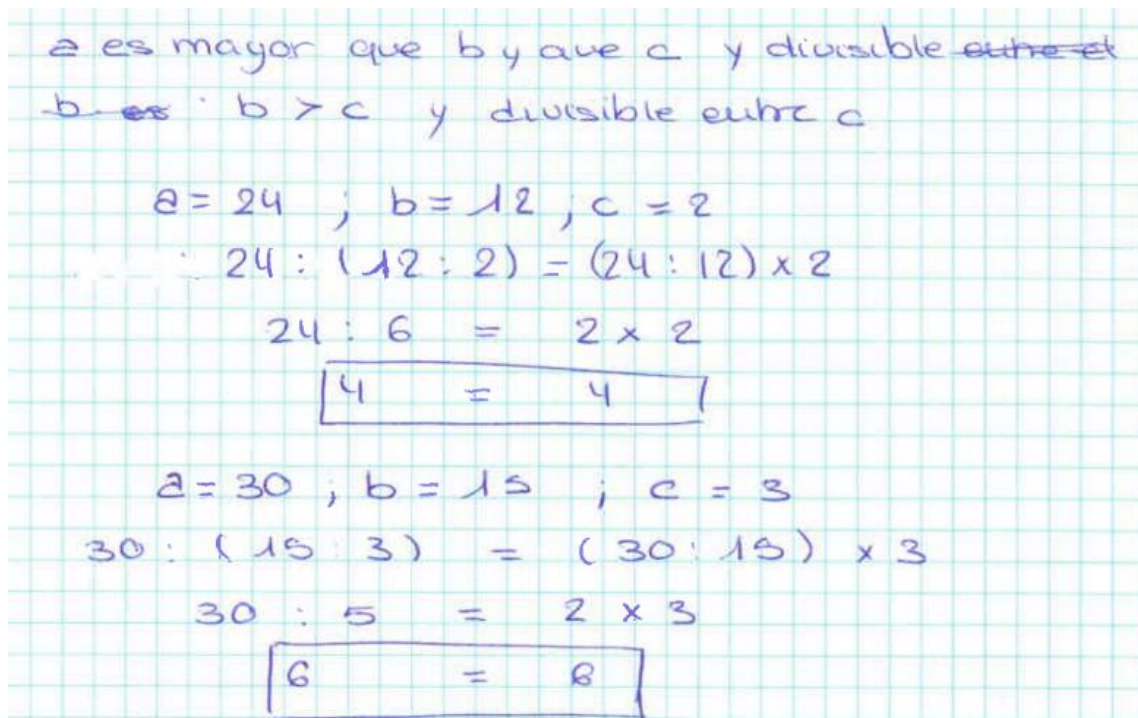 a es mayor que b y que c y divisible entre el
b es b > c y divisible entre c
a = 24 ; b = 12 ; c = 2
24 : (12 : 2) = (24 : 12) x 2
24 : 6 = 2 x 2
4 = 4
a = 30 ; b = 15 ; c = 3
30 : (15 : 3) = (30 : 15) x 3
30 : 5 = 2 x 3
6 = 6